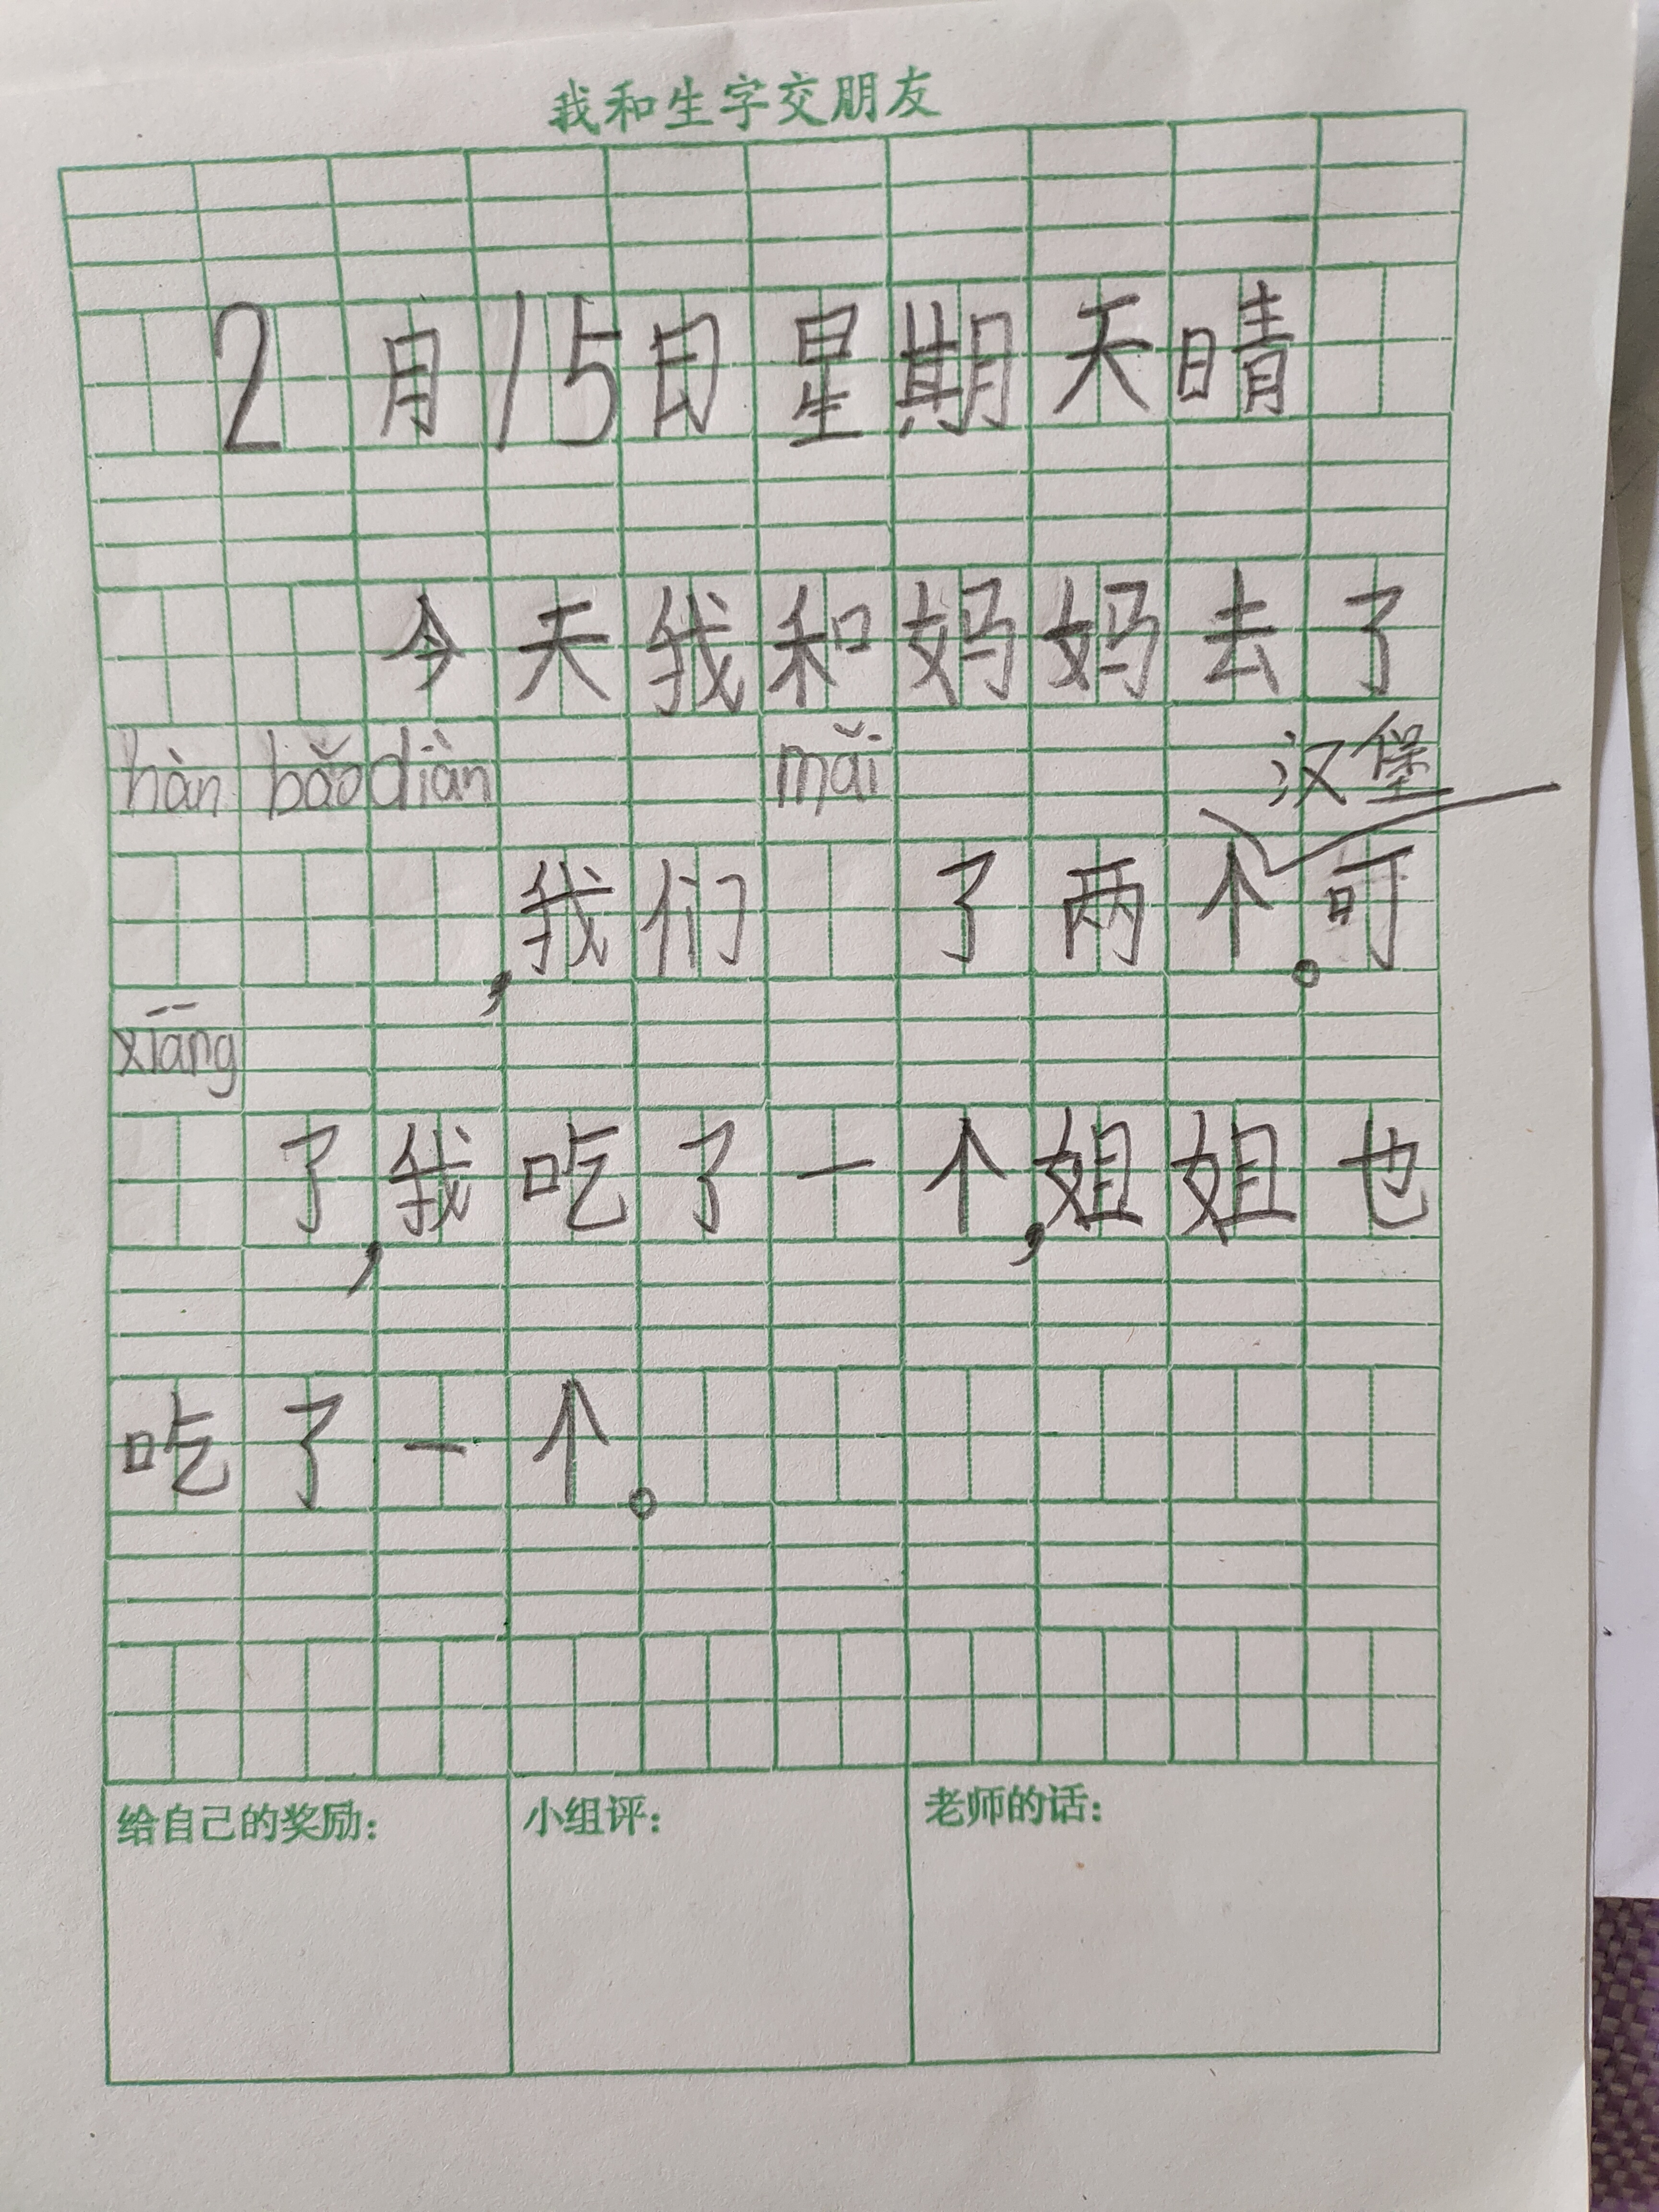 我和生字交朋友
2月15日星期天晴
今天我和妈妈去了
hàn bǎo diàn mǎi 汉堡
，我们 了两个。可
xiāng
了，我吃了一个，姐姐也
吃了一个。
给自己的奖励： 小组评： 老师的话：